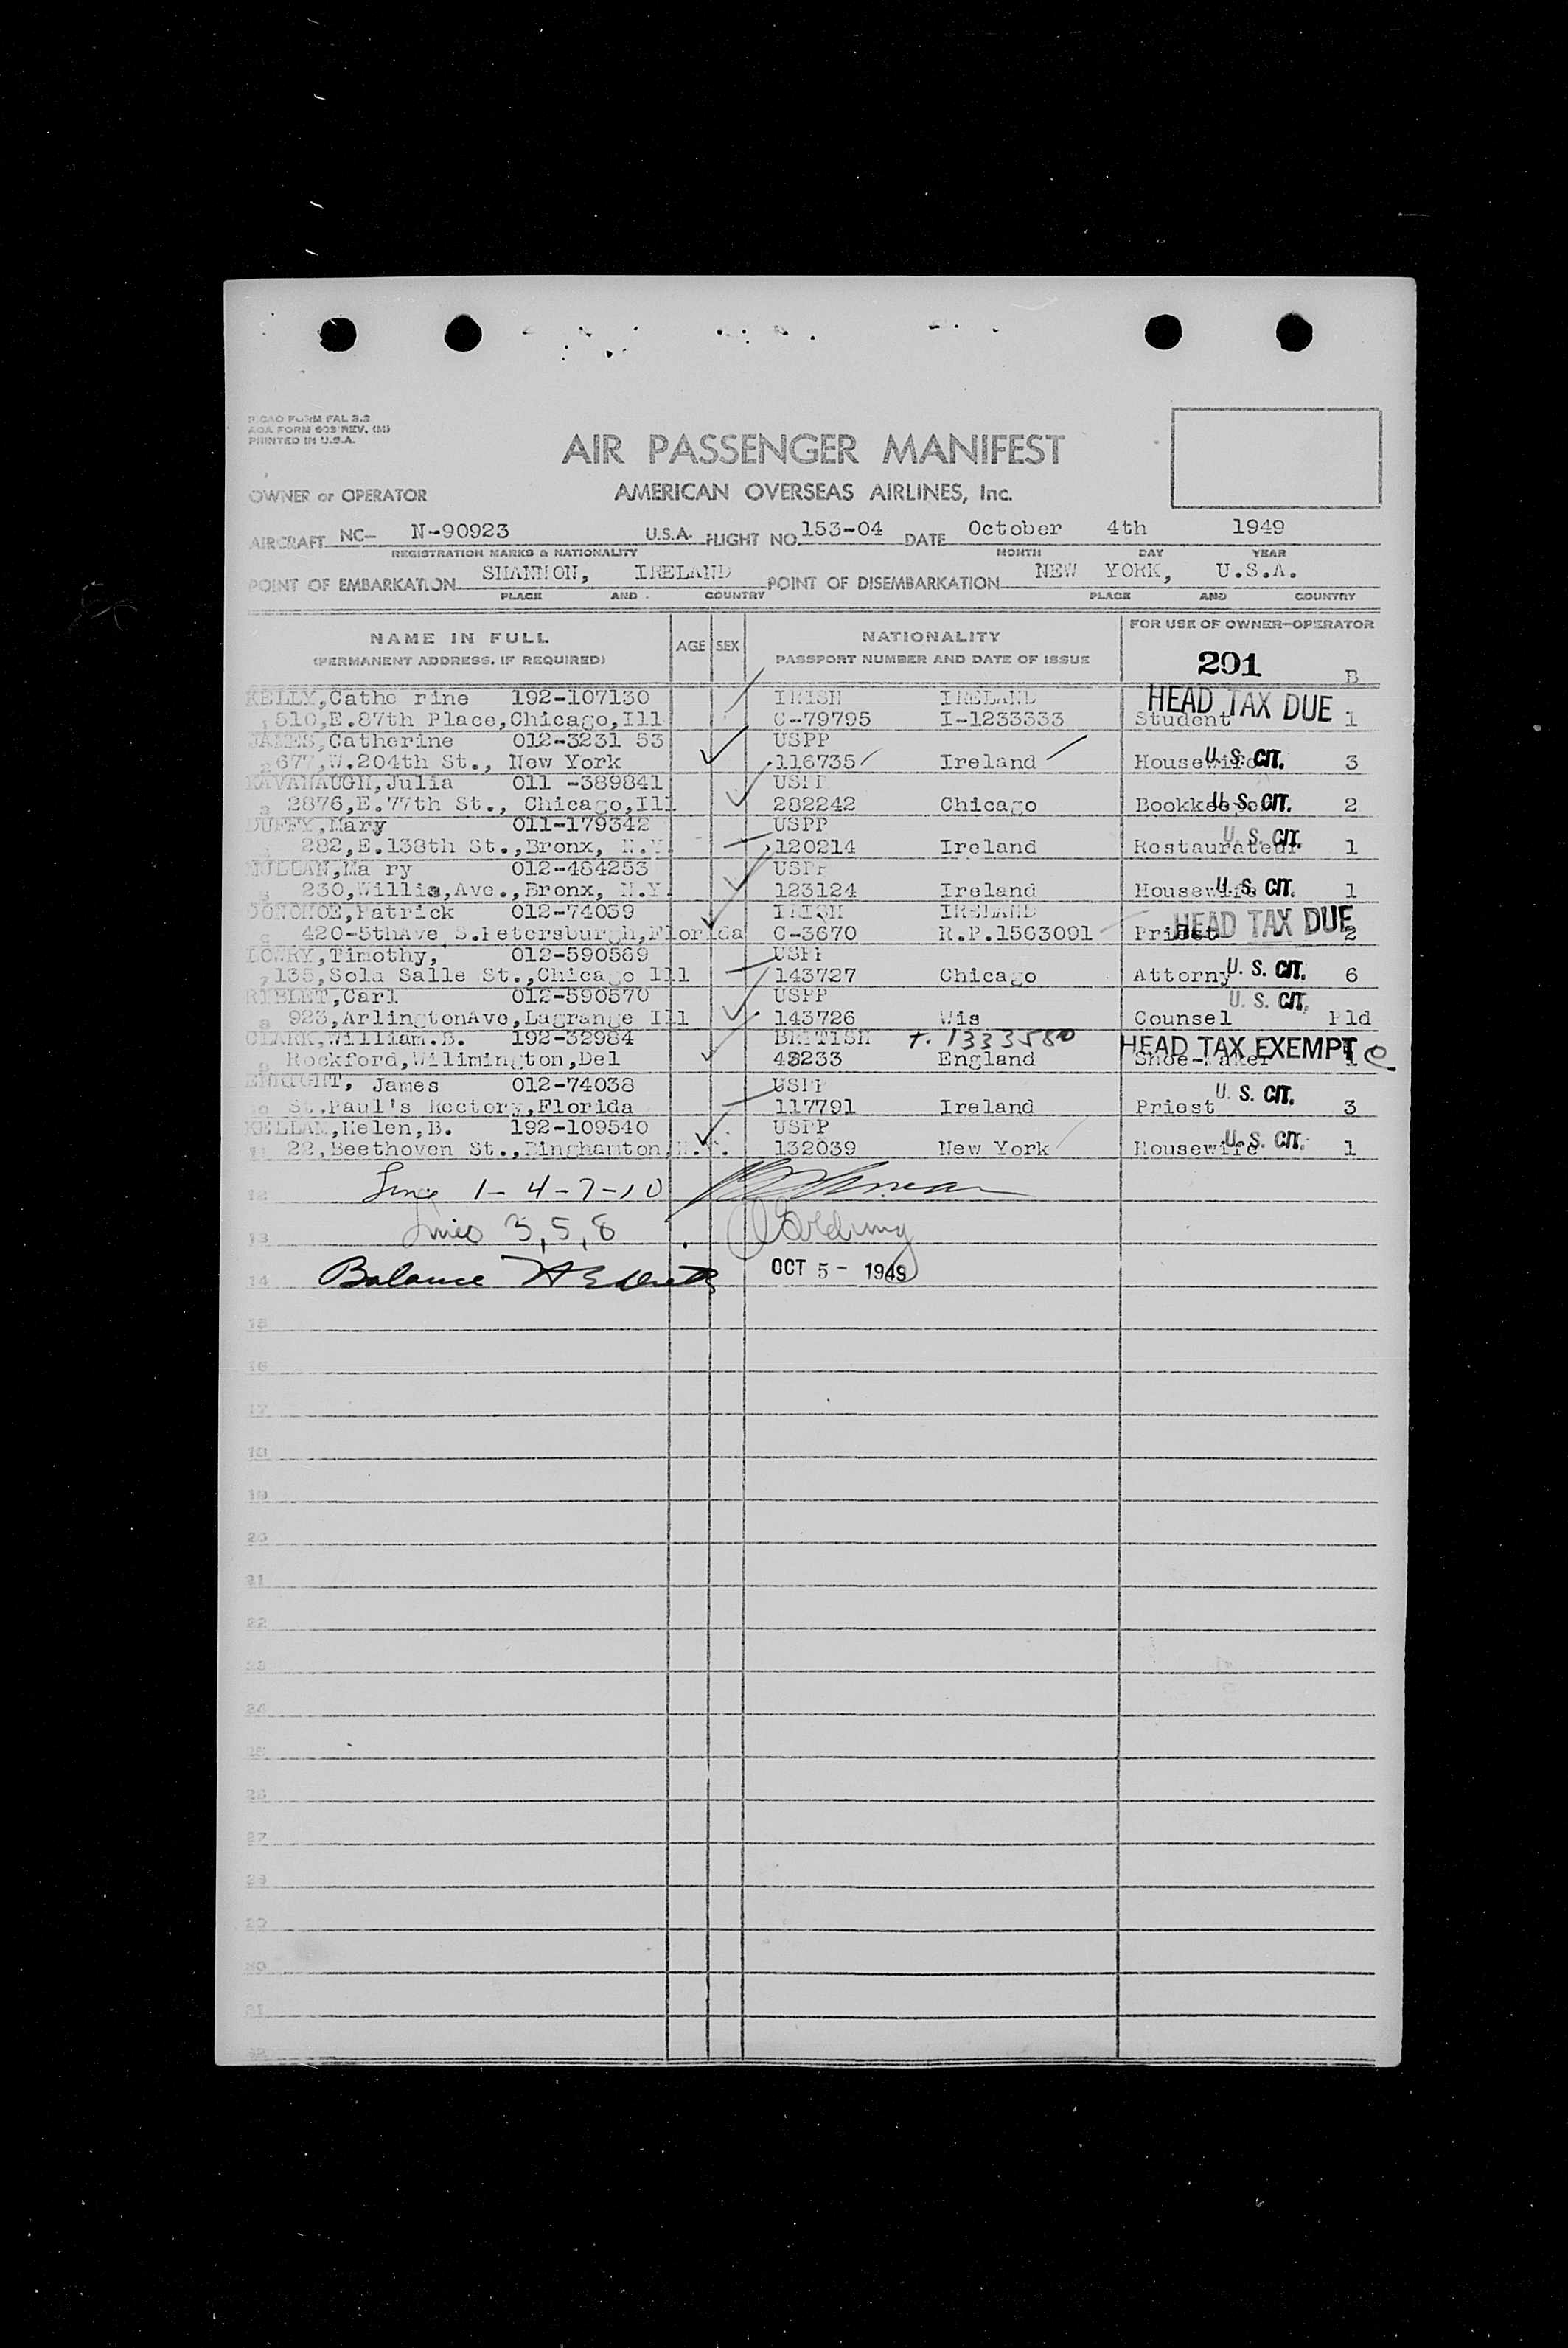 ICAO FORM FAL 3.2
AOA FORM 603 REV. (M)
PRINTED IN U.S.A.
AIR PASSENGER MANIFEST
OWNER or OPERATOR AMERICAN OVERSEAS AIRLINES, Inc.
AIRCRAFT NC- N-90923 U.S.A. FLIGHT NO. 153-04 DATE October 4th 1949
REGISTRATION MARKS & NATIONALITY MONTH DAY YEAR
POINT OF EMBARKATION SHANNON, IRELAND POINT OF DISEMBARKATION NEW YORK, U.S.A.
PLACE AND COUNTRY PLACE AND COUNTRY
NAME IN FULL AGE SEX NATIONALITY FOR USE OF OWNER-OPERATOR
(PERMANENT ADDRESS, IF REQUIRED) PASSPORT NUMBER AND DATE OF ISSUE 201 B
KELLY,Cathe rine 192-107130 IRISH IRELAND HEAD TAX DUE
1 510,E.87th Place,Chicago,Ill C-79795 I-1233333 Student 1
JAMES,Catherine 012-3231 53 USPP
2 677,W.204th St., New York 116735 Ireland Housewife U. S. CIT. 3
KAVANAUGH,Julia 011 -389841 USPP
3 2876,E.77th St., Chicago,Ill 282242 Chicago Bookkeeper U. S. CIT. 2
DUFFY,Mary 011-179342 USPP U. S. CIT.
282,E.138th St.,Bronx, N.Y. 120214 Ireland Restaurateur 1
MULLAN,Ma ry 012-484253 USPP
5 230,Willis,Ave.,Bronx, N.Y. 123124 Ireland Housewife U. S. CIT. 1
DONOHOE,Patrick 012-74039 IRISH IRELAND HEAD TAX DUE
6 420-5thAve S.Petersburgh,Florida C-3670 R.P.1563091 Priest 2
LOWRY,Timothy, 012-590569 USPP
7 135,Sola Salle St.,Chicago Ill 143727 Chicago Attorny U. S. CIT. 6
RIBLET,Carl 012-590570 USPP U. S. CIT.
8 923,ArlingtonAve,Lagrange Ill 143726 Wis Counsel Pld
CLARK,William.B. 192-32984 BRITISH +. 1333580 HEAD TAX EXEMPT
9 Rockford,Wilimington,Del 48233 England Shoe-Maker 1
ENRIGHT, James 012-74038 USPP U. S. CIT.
10 St.Paul's Rectory,Florida 117791 Ireland Priest 3
KELLAM,Helen,B. 192-109540 USPP U. S. CIT.
11 22,Beethoven St.,Binghamton,N.Y. 132039 New York Housewife 1
12 Line 1-4-7-10
13 Lines 3,5,8 Golding
14 Balance OCT 5 - 1949
15
16
17
18
19
20
21
22
23
24
25
26
27
28
29
30
31
32